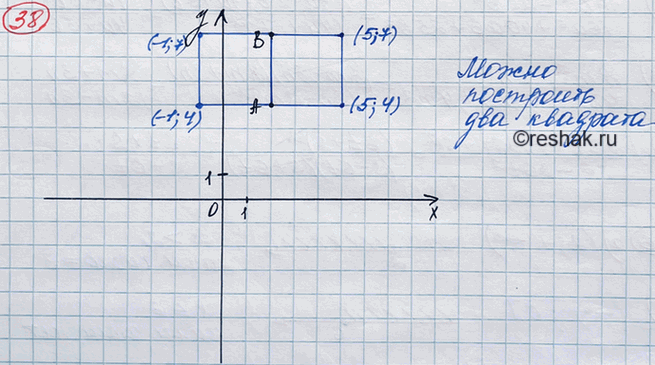 38
y
(-1;7)
B
(5;7)
(-1;4)
A
(5;4)
Можно
построить
два квадрата
©reshak.ru
1
0
1
x